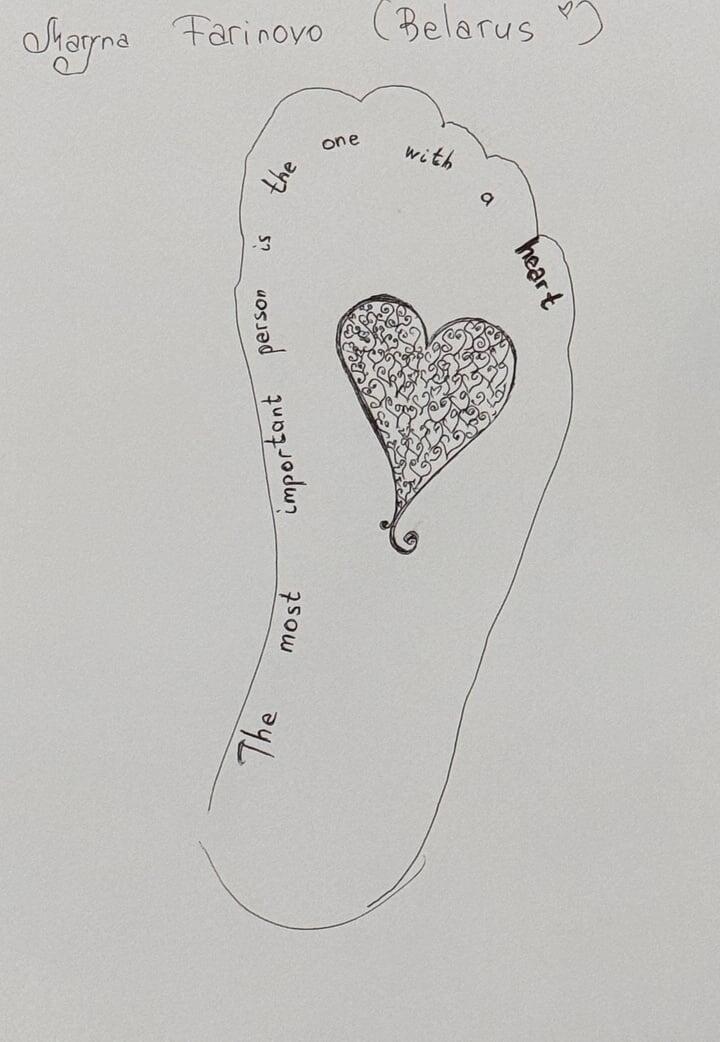 Maryna Farinovo (Belarus ♡)
The most important person is the one with a heart